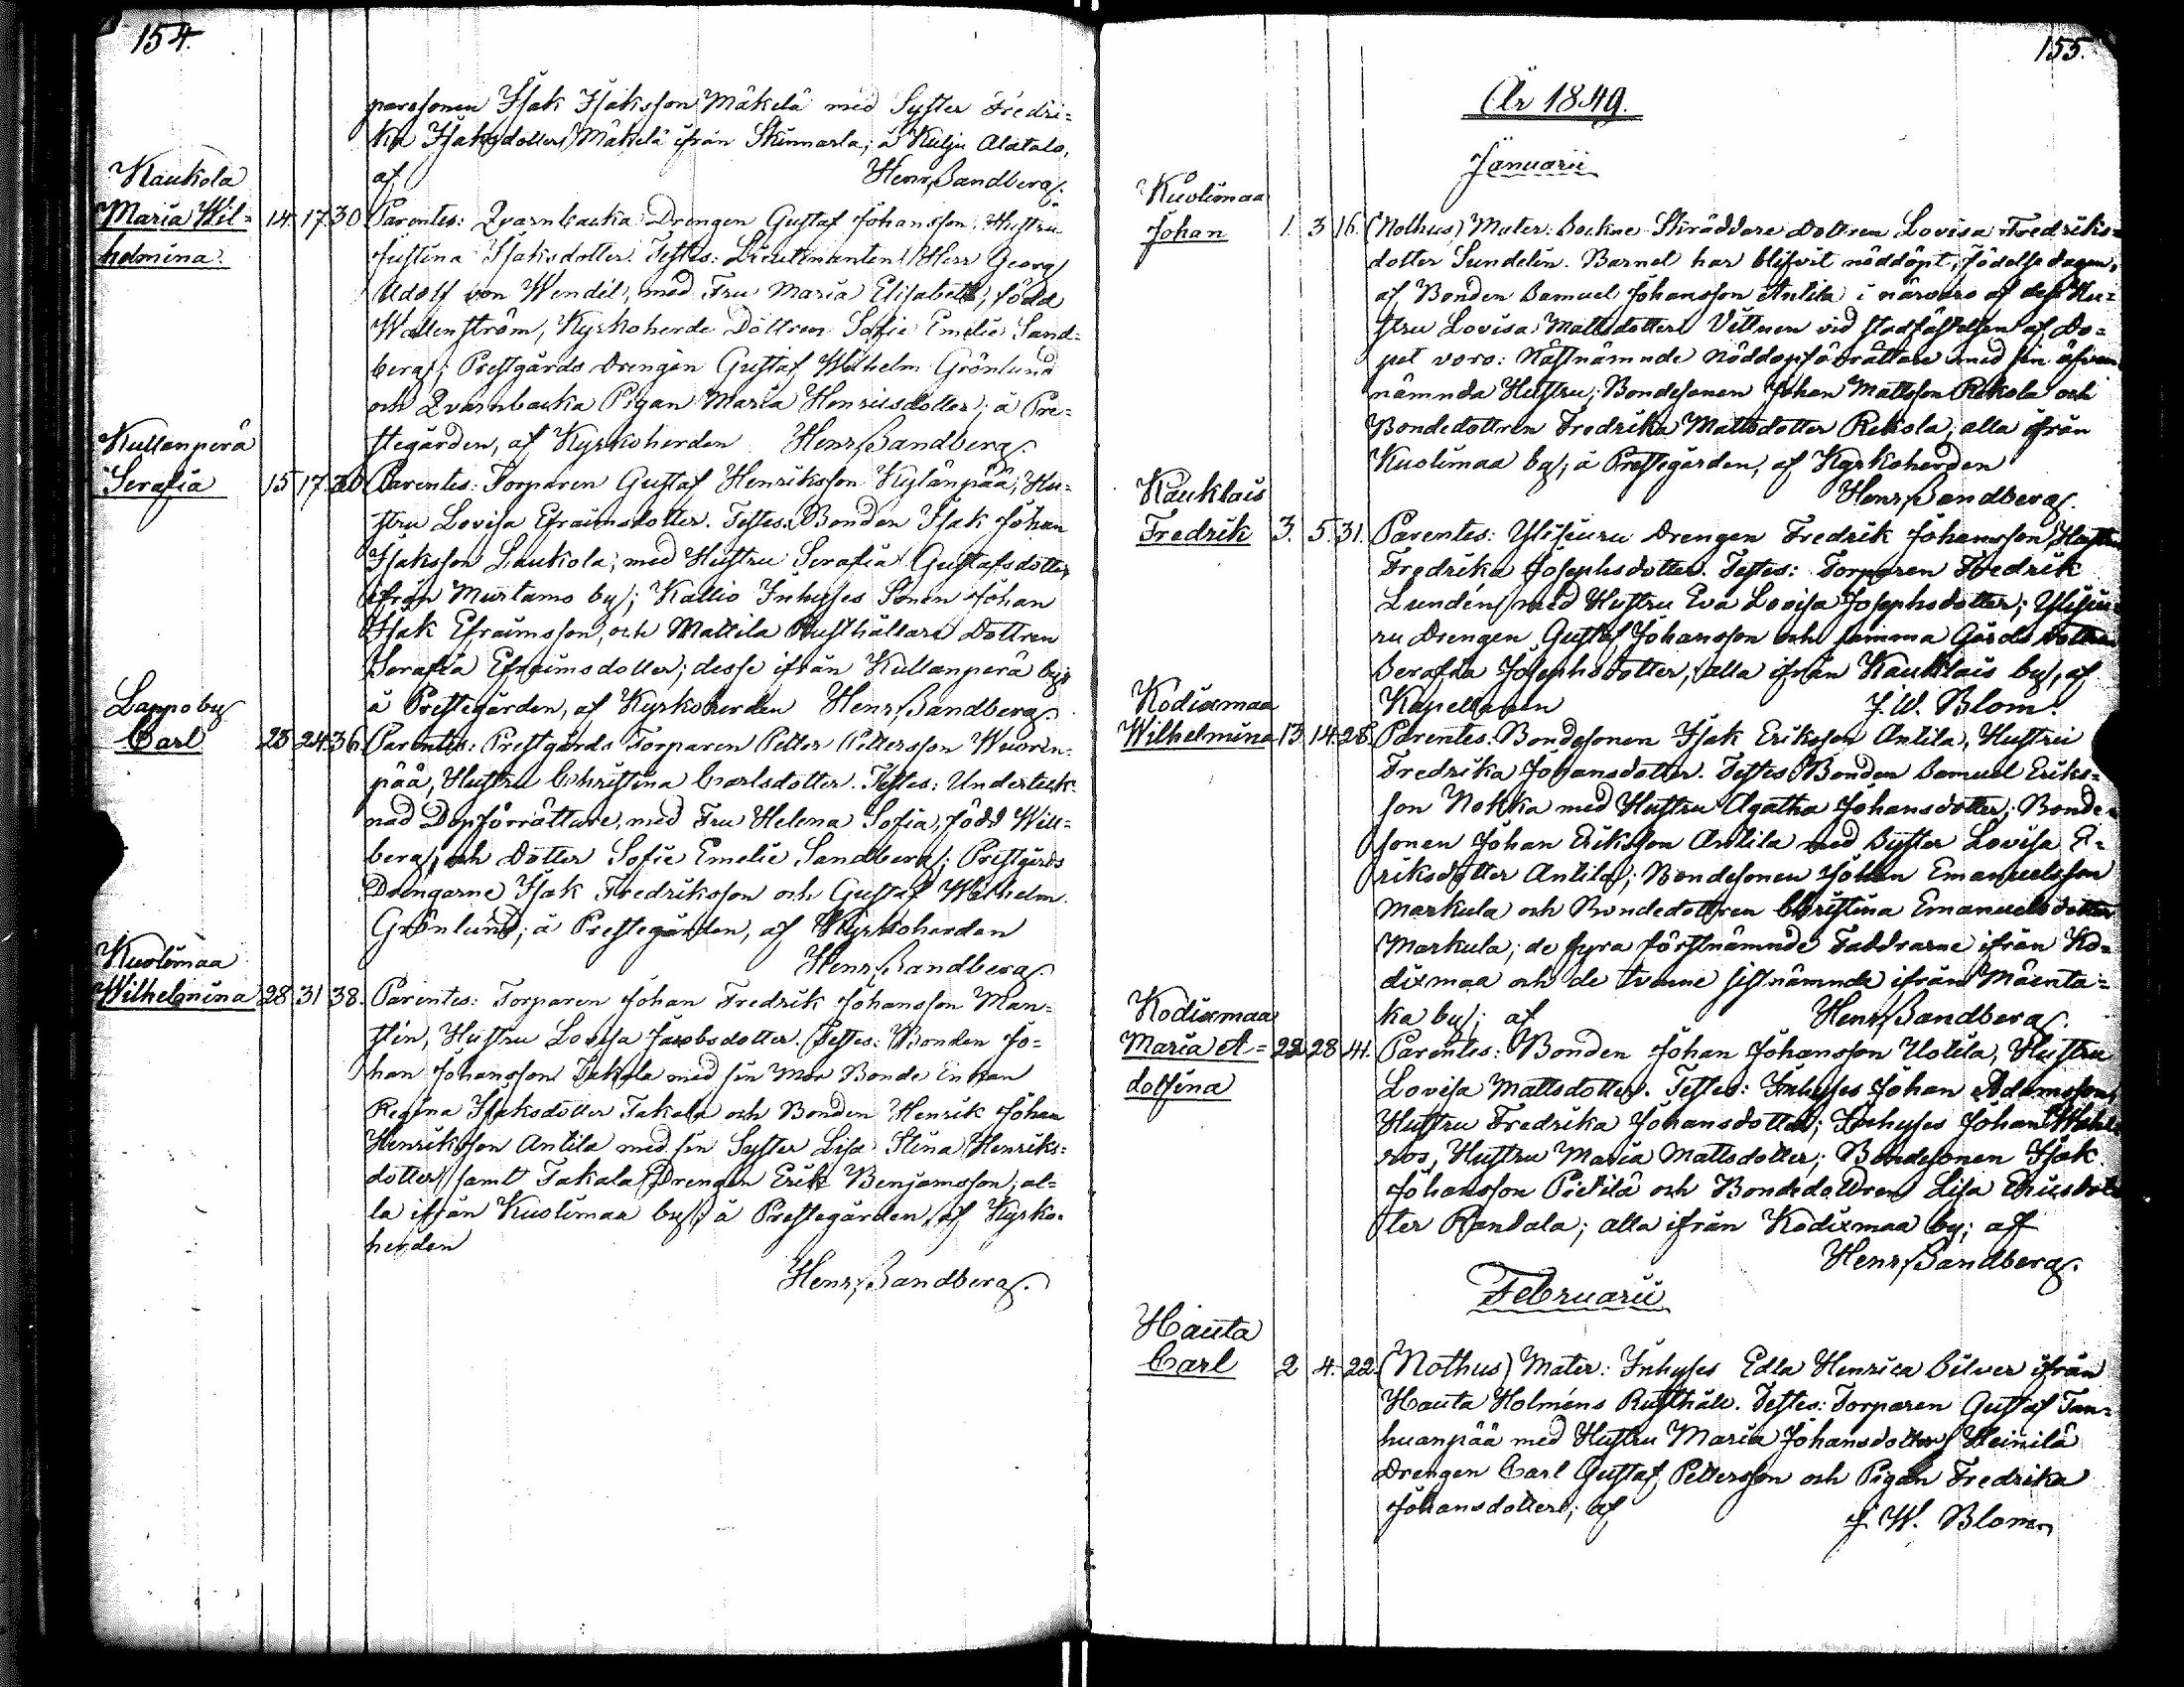 154.
parosonen Isak Isaksson Mäkelä med Syster Fredri=
ka Isaksdotter Mäkelä ifrån Skinnarla; å Kulju Alatalo,
af Henr. Sandberg.
Kaukola
Maria Wil=
helmina. 14. 17. 30 Parentes: Qvarnbacka Drengen Gustaf Johansson, Hustru
Justina Isaksdotter. Testes: Lieutenanten Herr Georg
Adolf von Wendel, med Fru Maria Elisabeth, född
Wallenström, Kyrkoherde Dottren Sofie Emelie Sand=
berg; Prestgårds Drengen Gustaf Wilhelm Grönlund
och Qvarnbacka Pigan Maria Henricsdotter; å Pre=
stegården, af Kyrkoherden Henr. Sandberg.
Kullanperä
Serafia 15 17. 30 Parentes: Torparen Gustaf Henriksson Kylänpää, Hu=
stru Lovisa Efraimsdotter. Testes: Bonden Isak Johan
Isaksson Laukola, med Hustru Serafia Gustafsdotter
ifrån Murtamo by; Kallio Inhyses Sonen Johan
Isak Efraimsson, och Mattila Rusthållare Dottren
Serafia Efraimsdotter; desse ifrån Kullanperä by;
å Prestegården, af Kyrkoherden Henr. Sandberg.
Lappo by
Carl 23 24. 36. Parentes: Prestgårds Torparen Petter Pettersson Wuoren=
pää, Hustru Christina Carlsdotter. Testes: Underteck=
nad Dopförrättare, med Fru Helena Sofia, född Will=
berg, och dotter Sofie Emelie Sandberg; Prestgårds
Drengarne Isak Fredriksson och Gustaf Wilhelm
Grönlund; å Prestegården, af Kyrkoherden
Henr. Sandberg.
Kuolimaa
Wilhelmina 28 31 38. Parentes: Torparen Johan Fredrik Johansson Man=
stén, Hustru Lovisa Jacobsdotter. Testes: Bonden Jo=
han Johansson Takala med sin Mor Bonde Enkan
Regina Isaksdotter Takala och Bonden Henrik Johan
Henriksson Antila med sin Syster Lisa Stina Henriks=
dotter samt Takala Drengen Erik Benjamsson; al=
la ifrån Kuolimaa by; å Prestegården, af Kyrko=
herden
Henr. Sandberg.
155.
År 1849.
Januarii
Kuolimaa
Johan 1. 3 16. (Nothus) Mater: Sockne Skräddare Dottren Lovisa Fredriks=
dotter Sundelin. Barnet har blifvit nöddöpt, födelse dagen,
af Bonden Samuel Johansson Antila i närvaro af dess Hu=
stru Lovisa Mattsdotter. Vittnen vid stadfästelsen af Do=
pet voro: Nästnämnde Nöddopförrättare med sin äfven
nämnda Hustru; Bondesonen Johan Mattsson Rekola och
Bondedottren Fredrika Mattsdotter Rekola; alla ifrån
Kuolimaa by; å Prestegården, af Kyrkoherden
Henr. Sandberg.
Kauklais
Fredrik 3. 5. 31. Parentes: Ylisjuru Drengen Fredrik Johansson, Hustru
Fredrika Josephsdotter. Testes: Torparen Fredrik
Lundén med Hustru Eva Lovisa Josephsdotter; Ylisju=
ru Drengen Gustaf Johansson och samma Gårds Dottren
Serafia Josephsdotter, alla ifrån Kauklais by, af
Kapellanen J. W. Blom.
Kodixmaa
Wilhelmina 13. 14. 28. Parentes: Bondesonen Isak Eriksson Antila, Hustru
Fredrika Johansdotter. Testes: Bonden Samuel Eriks=
son Nokka med Hustru Agatha Johansdotter; Bonde=
sonen Johan Eriksson Antila med Syster Lovisa E=
riksdotter Antila; Bondesonen Johan Emanuelsson
Markula och Bondedottren Christina Emanuelsdotter
Markula; de fyra förstnämnde Faddrarne ifrån Ko=
dixmaa och de tvenne sistnämnde ifrån Mäenta=
ka by; af Henr. Sandberg.
Kodixmaa
Maria A=
dolfina 22 28 41. Parentes: Bonden Johan Johansson Uotila, Hustru
Lovisa Mattsdotter. Testes: Inhyses Johan Adamsson,
Hustru Fredrika Johansdotter; Inhyses Johan Wahl=
roos, Hustru Maria Mattsdotter; Bondesonen Isak
Johansson Pietilä och Bondedottren Lisa
ter Randala; alla ifrån Kodixmaa by; af
Henr. Sandberg.
Februarii
Hauta
Carl 2 4. 22. (Nothus) Mater: Inhyses Edla Henrica Silver ifrån
Hauta Holméns Rusthåll. Testes: Torparen Gustaf Tan=
huanpää med Hustru Maria Johansdotter, Heinilä
Drengen Carl Gustaf Pettersson och Pigan Fredrika
Johansdotter; af J. W. Blom